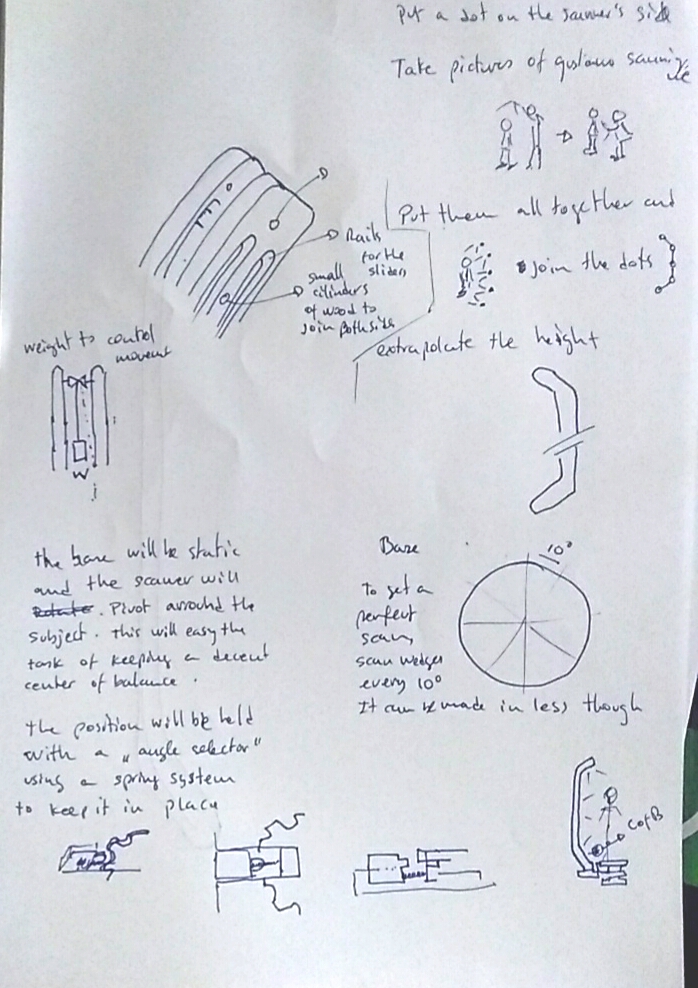 Put a dot on the scanner's side
Take pictures of gustavo scanning
Put them all together and
Join the dots
extrapolate the height
Rails
for the
sliders
small
cilinders
of wood to
join both sids
weight to control
movement
W
the base will be static
and the scanner will
Pivot arround the
subject. this will easy the
task of keeping a decent
center of balance.
the position will be held
with a "angle selector"
using a spring system
to keep it in place
Base
10°
To get a
perfect
scan,
scan wedges
every 10°
It can be made in less though
C of B